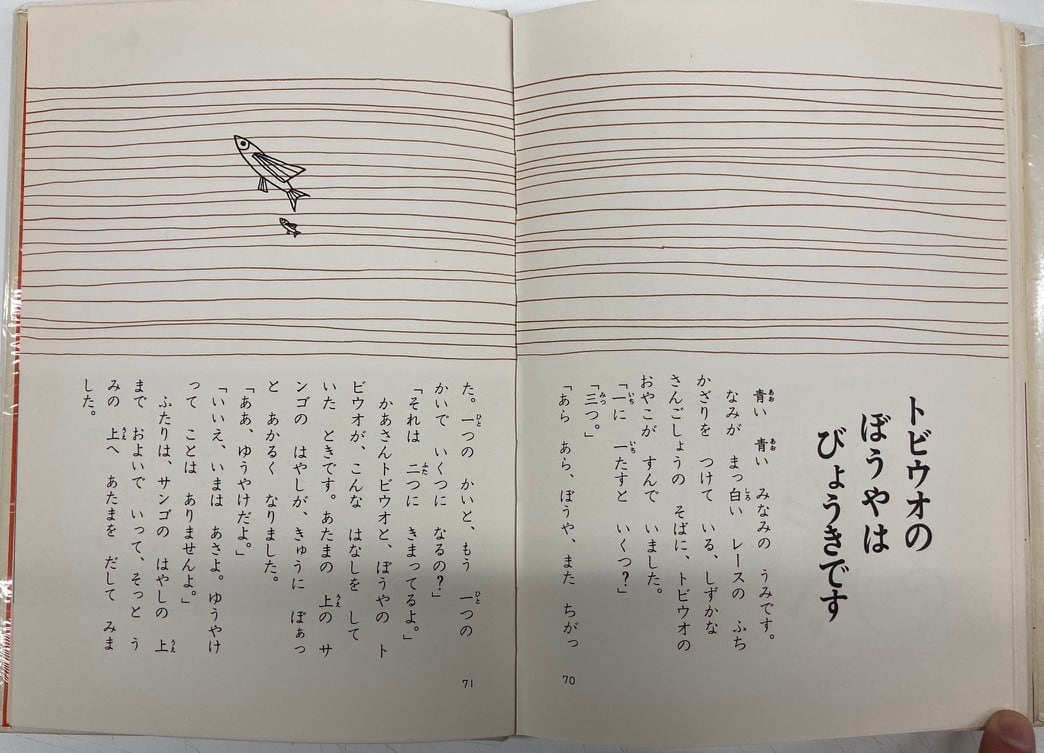 トビウオの
ぼうやは
びょうきです
青い　青い　みなみの　うみです。
なみが　まっ白い　レースの　ふち
かざりを　つけて　いる、しずかな
さんごしょうの　そばに、トビウオの
おやこが　すんで　いました。
「一に　一たすと　いくつ？」
「三つ。」
「あら　あら、ぼうや、また　ちがっ
70
た。一つの　かいと、もう　一つの
かいで　いくつに　なるの？」
「それは　二つに　きまってるよ。」
かあさんトビウオと、ぼうやの　ト
ビウオが、こんな　はなしを　して
いた　ときです。あたまの　上の　サ
ンゴの　はやしが、きゅうに　ぼぁっ
と　あかるく　なりました。
「ああ、ゆうやけだよ。」
「いいえ、いまは　あさよ。ゆうやけ
って　ことは　ありませんよ。」
ふたりは、サンゴの　はやしの　上
まで　およいで　いって、そっと　う
みの　上へ　あたまを　だして　みま
した。
71